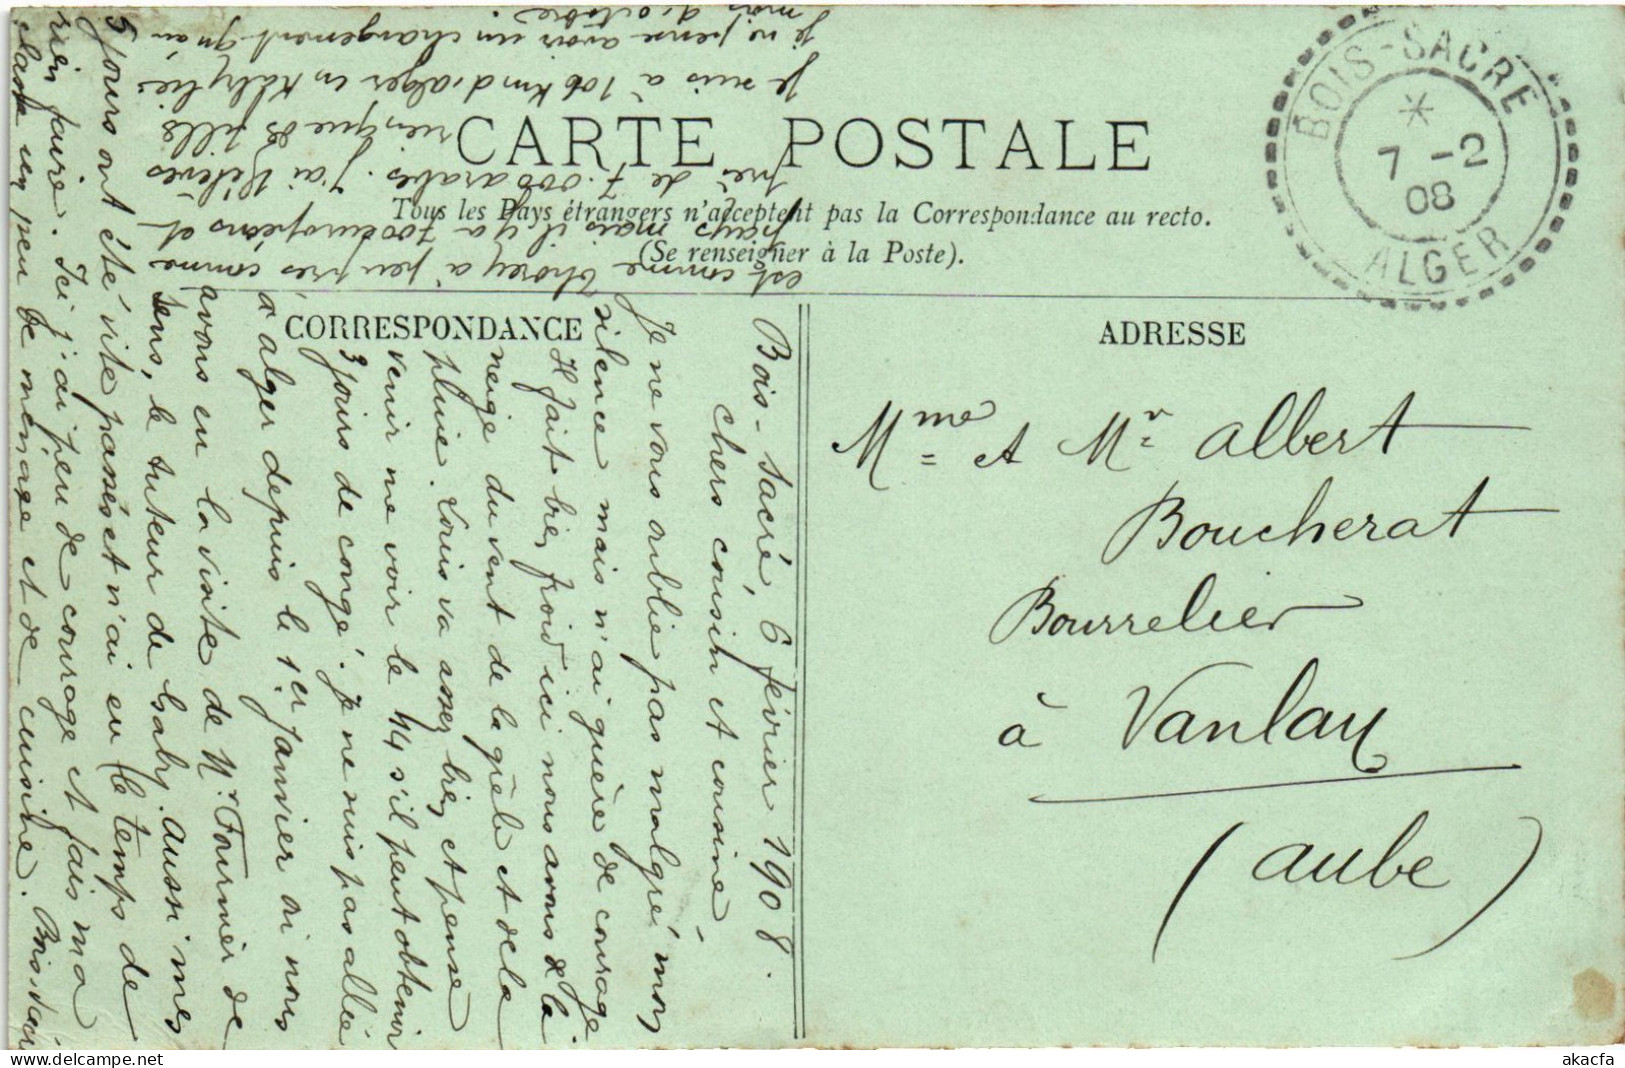 CARTE POSTALE
Tous les Pays étrangers n'acceptent pas la Correspondance au recto.
(Se renseigner à la Poste).
BOIS-SACRE
7 -2
08
ALGER
CORRESPONDANCE
ADRESSE
Mme et Mr Albert
Boucherat
Bourrelier
à Vanlay
(Aube)
Bois-Sacré, 6 février 1908.
Chers cousin et cousine
Je ne vous oublie pas malgré mon
silence mais n'ai guère de courage
Il fait bien froid ici nous avons de la
neige du vent de la gêlé et de la
pluie. Louis va assez bien et pense
venir me voir le 14 s'il peut obtenir
3 jours de congé. Je ne suis pas allé
à alger depuis le 1er Janvier où nous
avons eu la visite de Mr Fournier de
Sens, le tuteur de Gaby. Aussi mes
5 jours ont été vite passés et n'ai eu le temps de
rien faire. Ici j'ai peu de courage et fais ma
classe un peu de ménage et de cuisine. Bois Sacré
est comme Thorey à peu près comme
pays mais il y a 700 européens et
près de 7.000 arabes. J'ai élèves
rien que des filles
Je suis à 106 km d'alger en Kabylie.
je ne pense avoir un changement qu'au
mois d'octobre.
akacfa